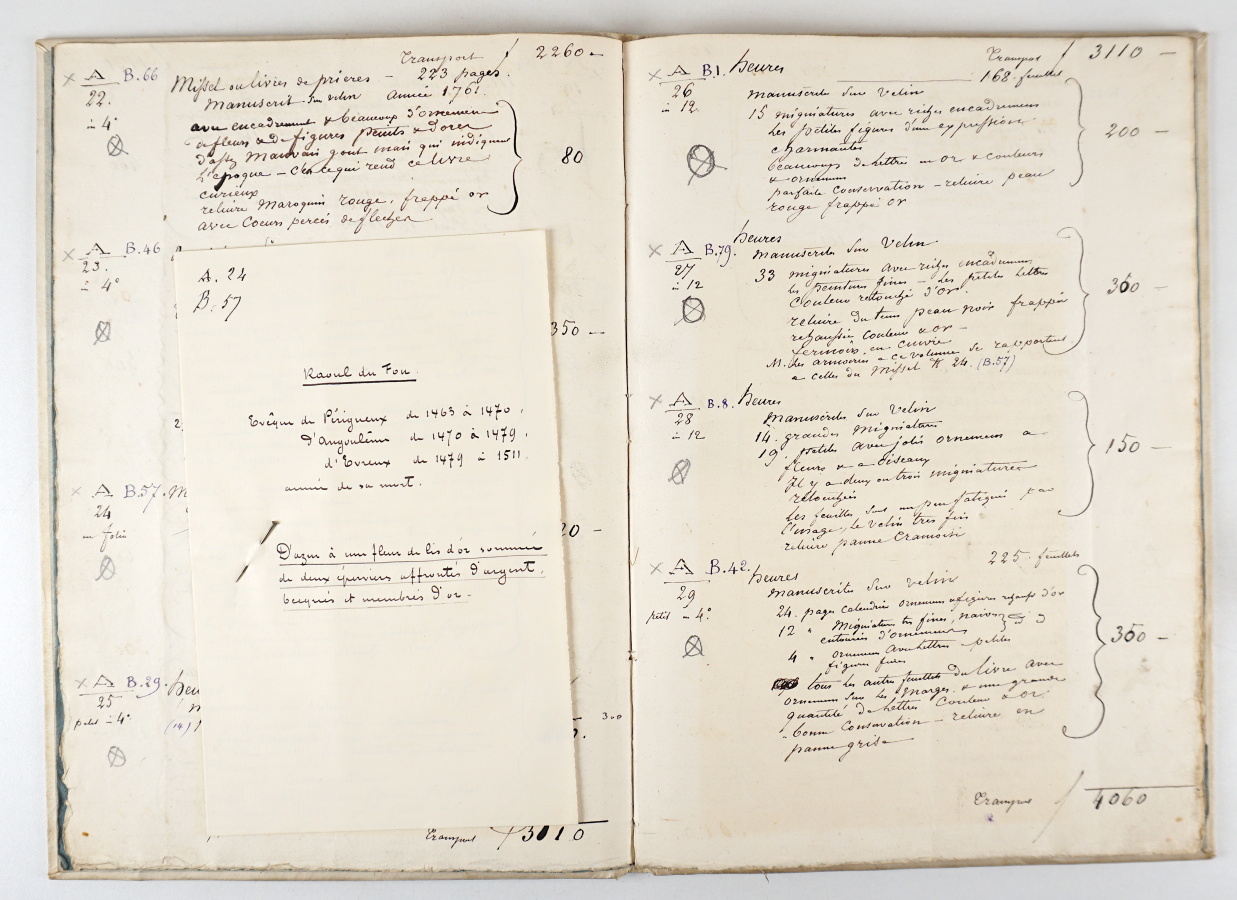 Transport 2260 -
× A B.66
22.
in 4°
Missel ou livres de prieres - 223 pages.
Manuscrit sur velin année 1761.
avec encadrement & beaucoup d'ornemens
a fleurs & de figures peints & dorés
d'assez Mauvais gout mais qui indiquent
L'epoque - C'est ce qui rend ce livre
curieux
80
reliure Maroquin rouge, frappé or
avec Coeurs percés de fleches
× A B.46
23.
in 4°
350 -
× A B.57.
24
in folio
20 -
× A B.29.
25
petit in 4°
(14)
300
Transport 3010
A. 24
B. 57
Raoul du Fou.
Evêque de Périgueux de 1463 à 1470,
d'Angoulême de 1470 à 1479,
d'Evreux de 1479 à 1511.
année de sa mort.
D'azur à une fleur de lis d'or sommée
de deux éperviers affrontés d'argent,
becqués et membrés d'or.
Transport 3110 -
× A B.1. heures
168. feuillets
26
in 12
manuscrites sur Velin
15 migniatures avec riches encadremens
Les petites figures d'une expression
charmantes
200 -
beaucoup de lettres en or & couleurs
& ornemens
parfaite Conservation - reliure peau
rouge frappé or
× A B.79. heures
27
in 12
manuscrites sur Velin
33 migniatures avec riches encadremens
les peintures fines - Les petites lettres
Couleur retouché d'or.
300 -
reliure du tems peau noir frappée
rehaussée couleur & or -
fermoirs en cuivre
N. Les armoiries a ce volume se rapportent
a celles du Missel A 24. (B.57)
× A B.8. heures
28
in 12
manuscrites sur Velin
14. grandes migniatures
19. petites avec jolis ornemens a
fleurs & a oiseaux
Il y a deux ou trois migniatures
retouchées
150 -
Les feuilles sont un peu fatigués par
l'usage, le velin tres fin
reliure panne Cramoisi
× A B.42. heures
225. feuillets
29
petit in 4°
manuscrites sur velin
24. pages calendrier ornemens & figures rehaussés d'or
12 " Migniatures tres fines, naives
entourées d'ornemens
4 " ornemens avec lettres - petites
figures fines
350 -
tous les autres feuillets du livre avec
ornemens sur les marges, & une grande
quantité de lettres Couleur & or
bonne Conservation - reliure en
panne grise
Transport 4060